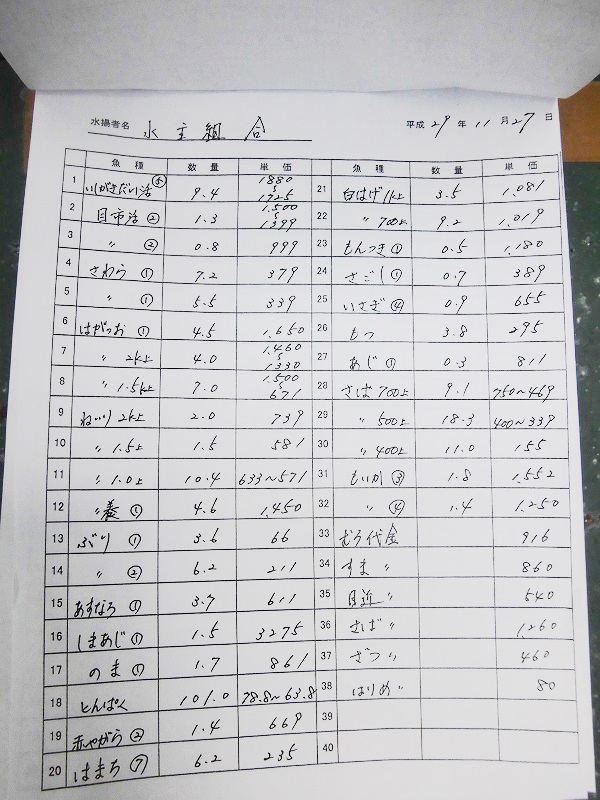 水揚者名 水主組合 平成29年11月27日
魚種 数量 単価
1 いがきだい活 9.4 1880~1725
2 目市活② 1.3 1,500~1399
3 〃② 0.8 999
4 さわら① 7.2 379
5 〃① 5.5 339
6 はがつお① 4.5 1,650
7 〃2k上 4.0 1,460~1330
8 〃1.5k上 7.0 1,500~671
9 ねいり2k上 2.0 739
10 〃1.5上 1.5 581
11 〃1.0上 10.4 633~571
12 〃養① 4.6 1,450
13 ぶり① 3.6 66
14 〃② 6.2 211
15 あすなろ① 3.7 611
16 しまあじ① 1.5 3275
17 のま① 1.7 861
18 とんぱく 101.0 78.8~63.8
19 赤やがら② 1.4 669
20 はまち⑦ 6.2 235
魚種 数量 単価
21 白はげ1k上 3.5 1,081
22 〃700上 9.2 1,019
23 もんつき① 0.5 1,180
24 さごし① 0.7 389
25 いさぎ④ 0.9 655
26 もつ 3.8 295
27 あじ① 0.3 811
28 さば700上 9.1 750~469
29 〃500上 18.3 400~339
30 〃400上 11.0 155
31 もいか③ 1.8 1,552
32 〃④ 1.4 1,250
33 むろ代金 916
34 すま〃 860
35 目近〃 540
36 さば〃 1,260
37 ざつ〃 460
38 はりめ〃 80
39
40